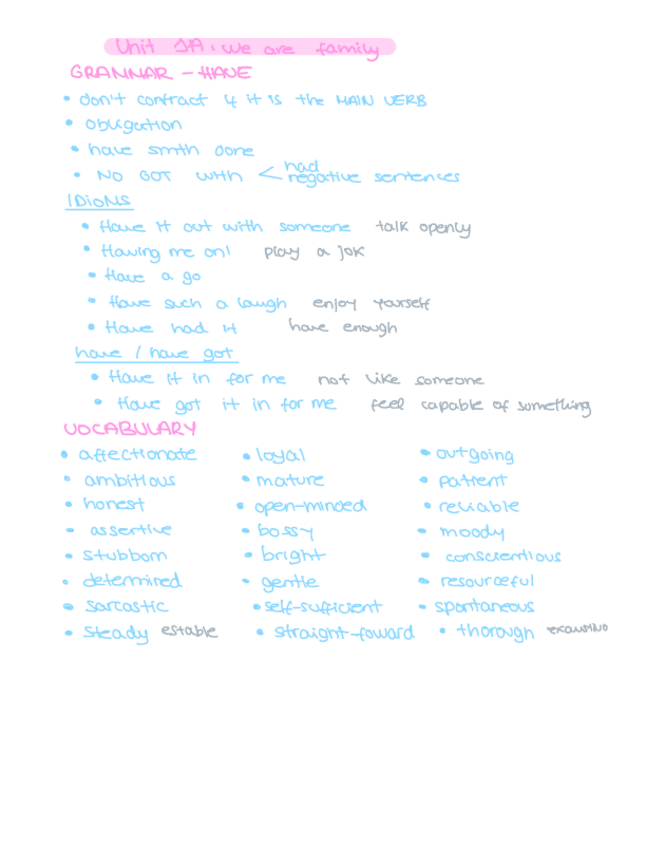 Unit 1A: we are family
GRAMMAR - HAVE
• don't contract if it is the MAIN VERB
• obligation
• have smth done
• NO GOT with < had
negative sentences
IDIOMS
• Have it out with someone talk openly
• Having me on! play a jok
• Have a go
• Have such a laugh enjoy yourself
• Have had it have enough
have / have got
• Have it in for me not like someone
• Have got it in for me feel capable of something
VOCABULARY
• affectionate • loyal • outgoing
• ambitious • mature • patient
• honest • open-minded • reliable
• assertive • bossy • moody
• stubborn • bright • conscientious
• determined • gentle • resourceful
• sarcastic • self-sufficient • spontaneous
• steady estable • straight-foward • thorough exaustivo